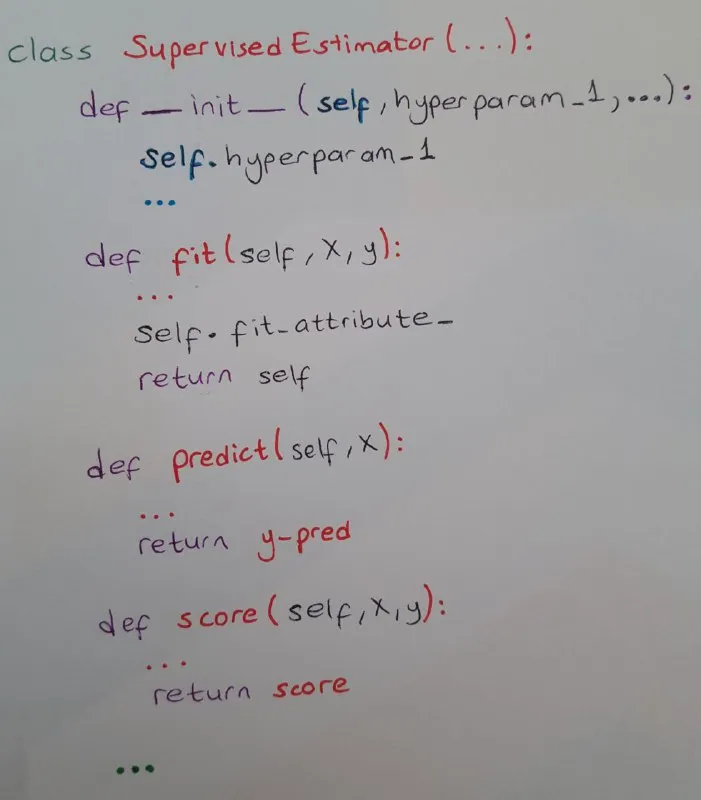 class Supervised Estimator (...):
def __init__(self, hyperparam_1, ...):
self.hyperparam_1
...
def fit(self, X, y):
...
self.fit_attribute_
return self
def predict(self, X):
...
return y-pred
def score(self, X, y):
...
return score
...